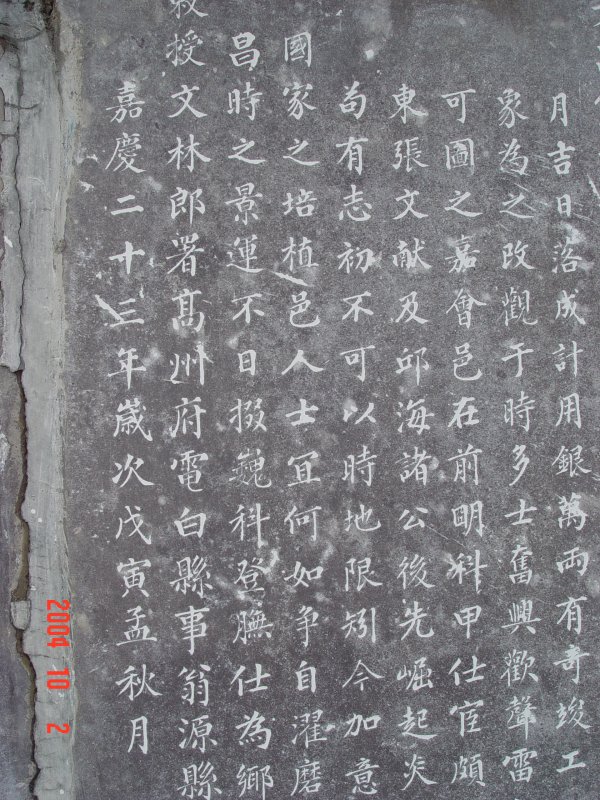 月吉日落成計用銀萬両有奇竣工
象為之改觀于時多士奮興歡聲雷
可圖之嘉會邑在前明科甲仕宦頗
東張文献及邱海諸公後先崛起炎
苟有志初不可以時地限矧今加意
國家之培植邑人士宜何如争自濯磨
昌時之景運不日掇巍科登膴仕為鄉
授文林郎署髙州府電白縣事翁源縣
嘉慶二十三年歲次戊寅孟秋月
2004 10 2